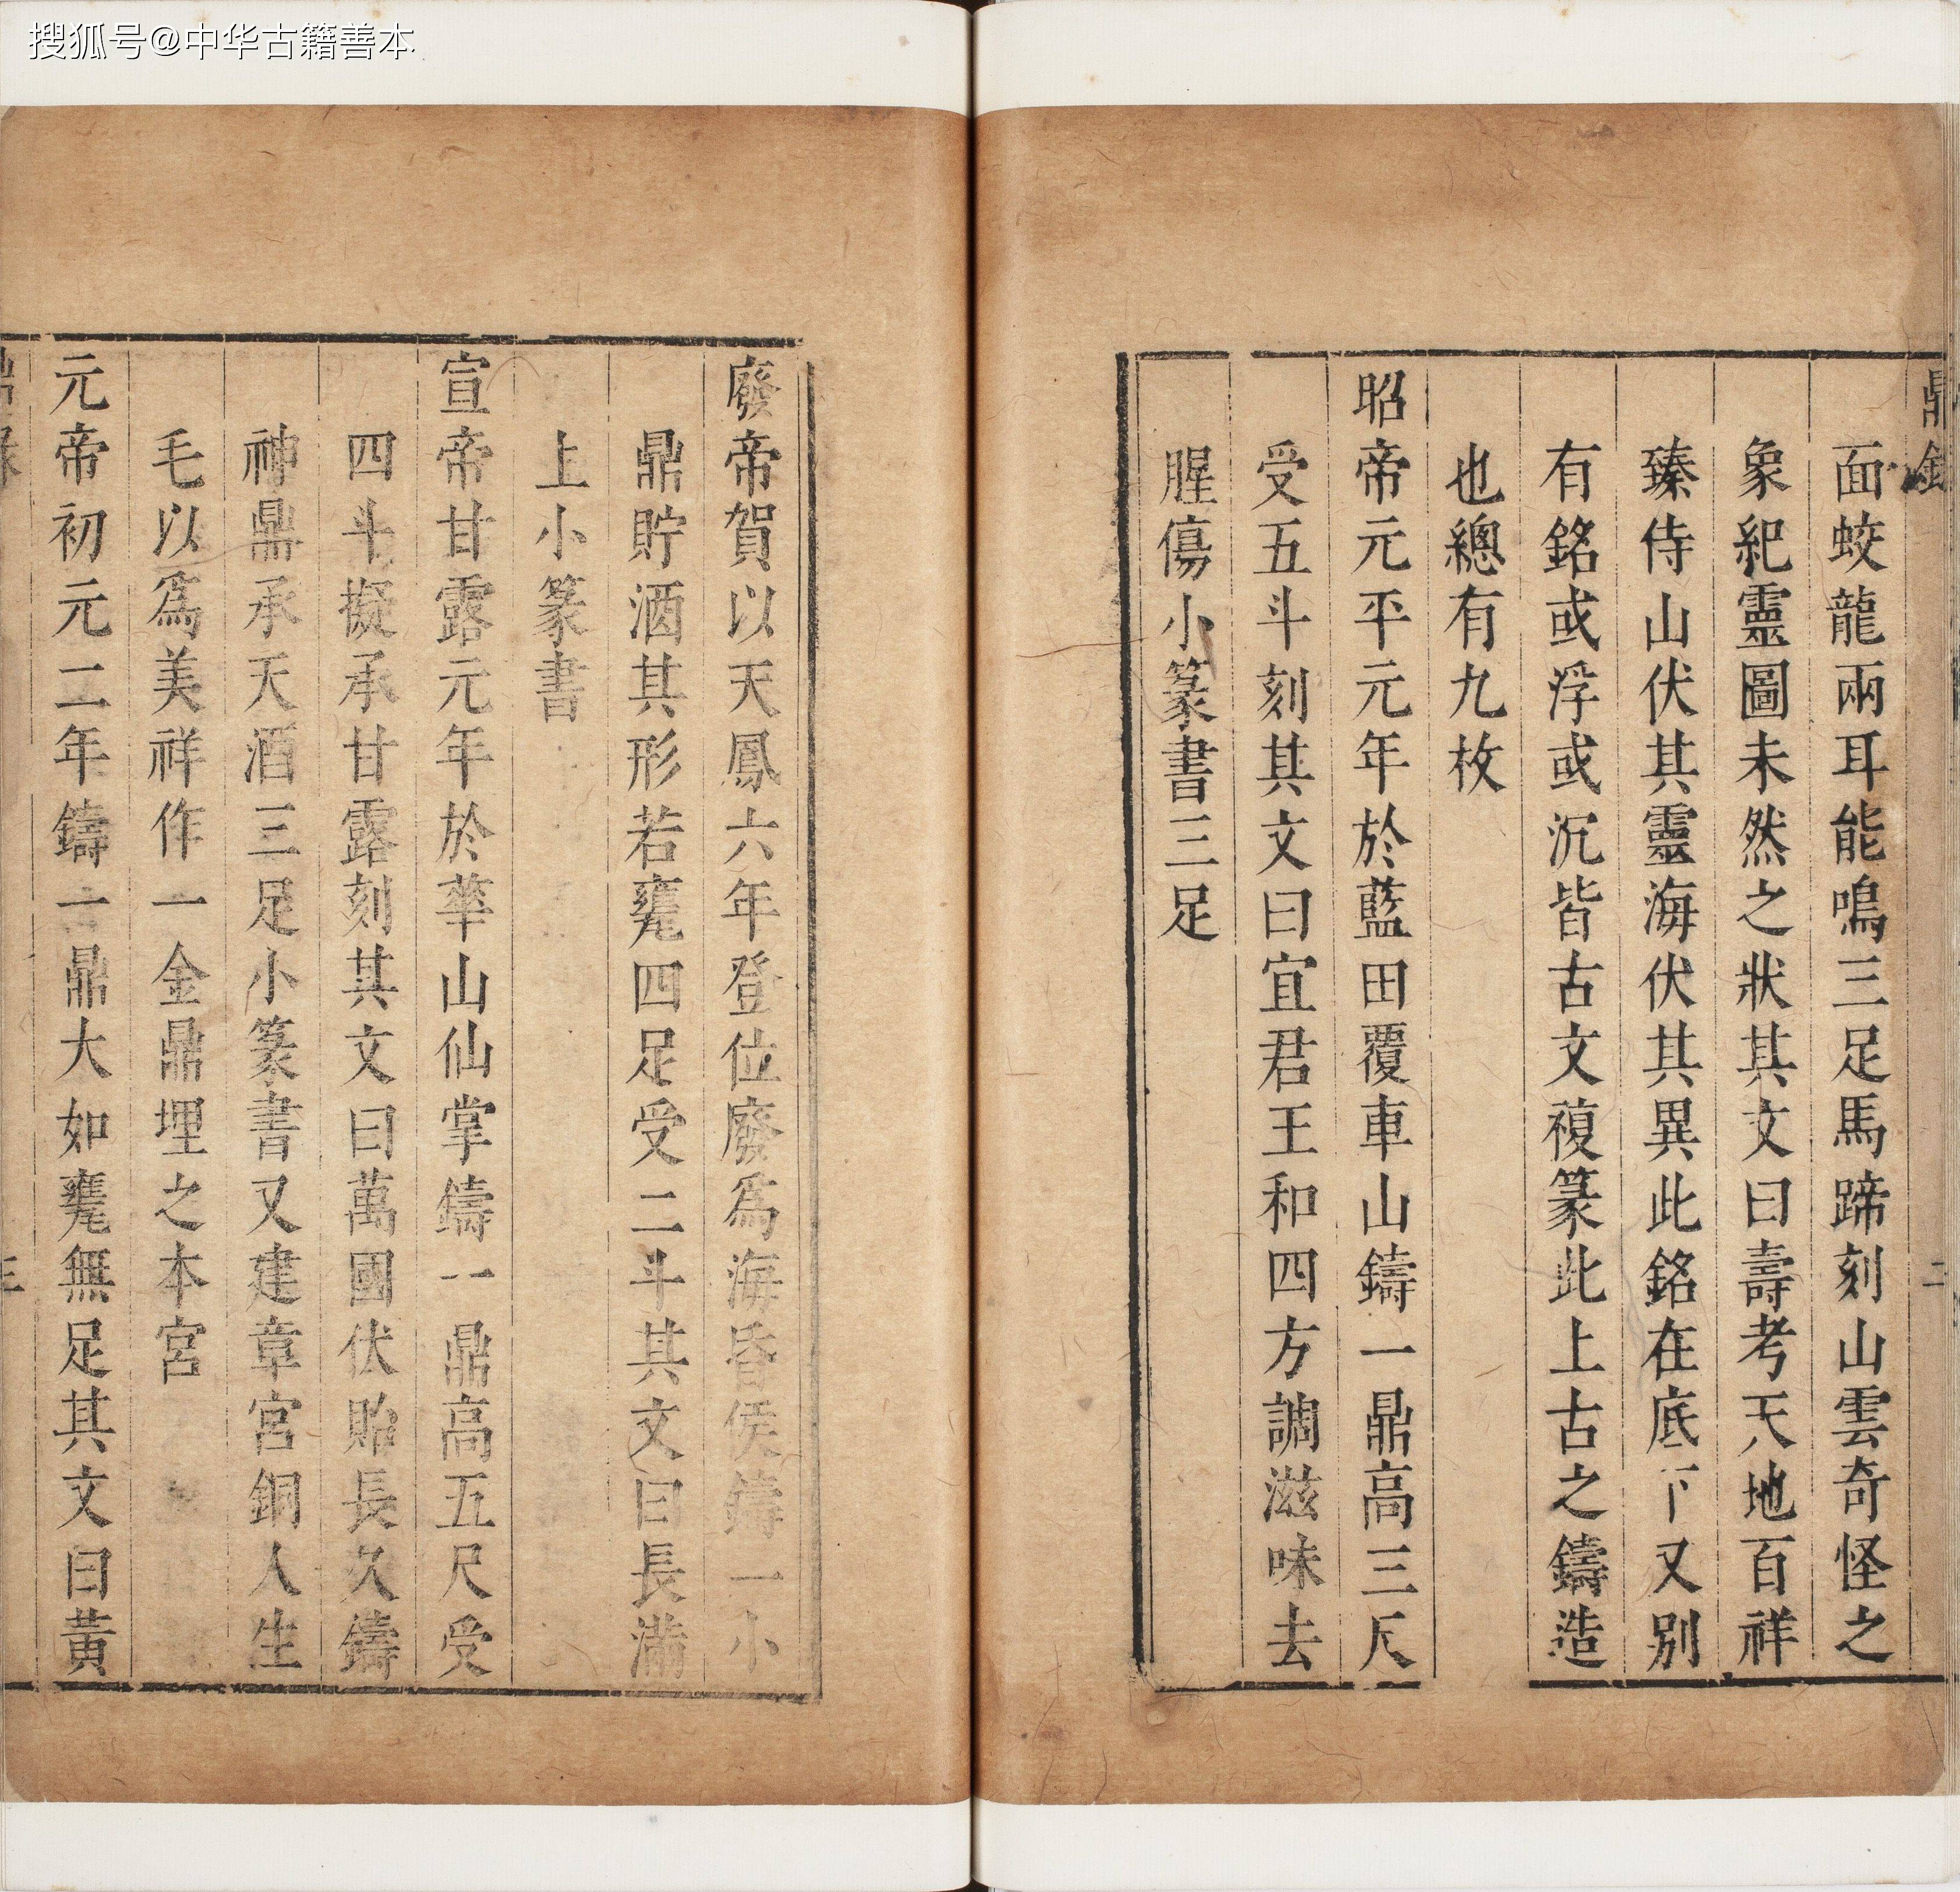 搜狐号@中华古籍善本
鼎録
二
面蛟龍兩耳能鳴三足馬蹄刻山雲奇怪之
象紀靈圖未然之狀其文曰壽考天地百祥
臻侍山伏其靈海伏其異此銘在底下又别
有銘或浮或沉皆古文複篆此上古之鑄造
也總有九枚
昭帝元平元年於藍田覆車山鑄一鼎高三尺
受五斗刻其文曰宜君王和四方調滋味去
腥傷小篆書三足
廢帝賀以天鳳六年登位廢爲海昏侯鑄一小
鼎貯酒其形若甕四足受二斗其文曰長滿
上小篆書
宣帝甘露元年於華山仙掌鑄一鼎高五尺受
四斗擬承甘露刻其文曰萬國伏貽長久鑄
神鼎承天酒三足小篆書又建章宮銅人生
毛以爲美祥作一金鼎埋之本宮
元帝初元二年鑄一鼎大如甕無足其文曰黃
鼎録
三